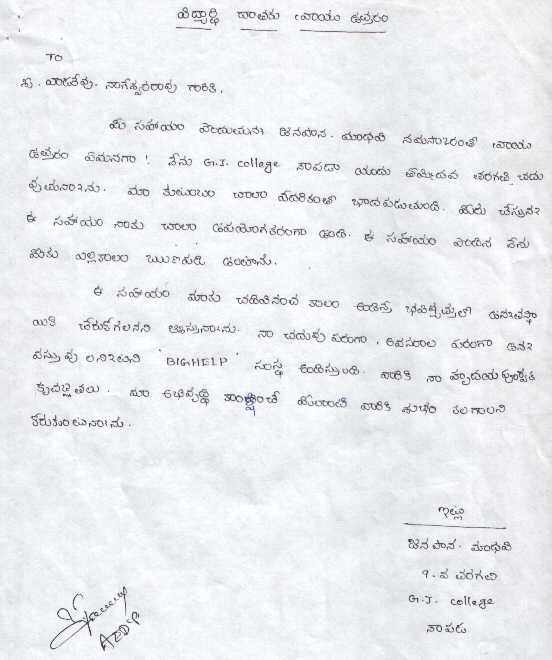 విద్యార్థి దాతకు వ్రాయు ఉత్తరం
TO
శ్రీ. నాగేశ్వరరావు గారికి,
మీ సహాయం పొందుచున్న మాధవి నమస్కారంతో వ్రాయు
ఉత్తరం ఏమనగా! నేను G.J. college నాపడా యందు తొమ్మిదవ తరగతి చదు
వుచున్నాను. మా కుటుంబం చాలా పేదరికంతో బాధపడుతుంది. మీరు చేస్తున్న
ఈ సహాయం నాకు చాలా ఉపయోగకరంగా ఉంది. ఈ సహాయం పొందిన నేను
మీకు ఎల్లకాలం ఋణపడి ఉంటాను.
ఈ సహాయం మాకు చదివినంత కాలం ఉండిస్తే భవిష్యత్తులో ఉన్నతస్థా
యికి చేరుకోగలనని ఆశిస్తున్నాను. నా చదువు పరంగా, అవసరాల పరంగా ఉన్న
వస్తువులన్నింటిని 'BIGHELP' సంస్థ అందిస్తుంది. వారికి నా హృదయ పూర్వక
కృతజ్ఞతలు. మా అభివృద్ధి కాంక్షించే మీలాంటి వారికి శుభం కలగాలని
కోరుకుంటున్నాను.
ఇట్లు
మాధవి
9. వ తరగతి
G.J. college
నాపడు